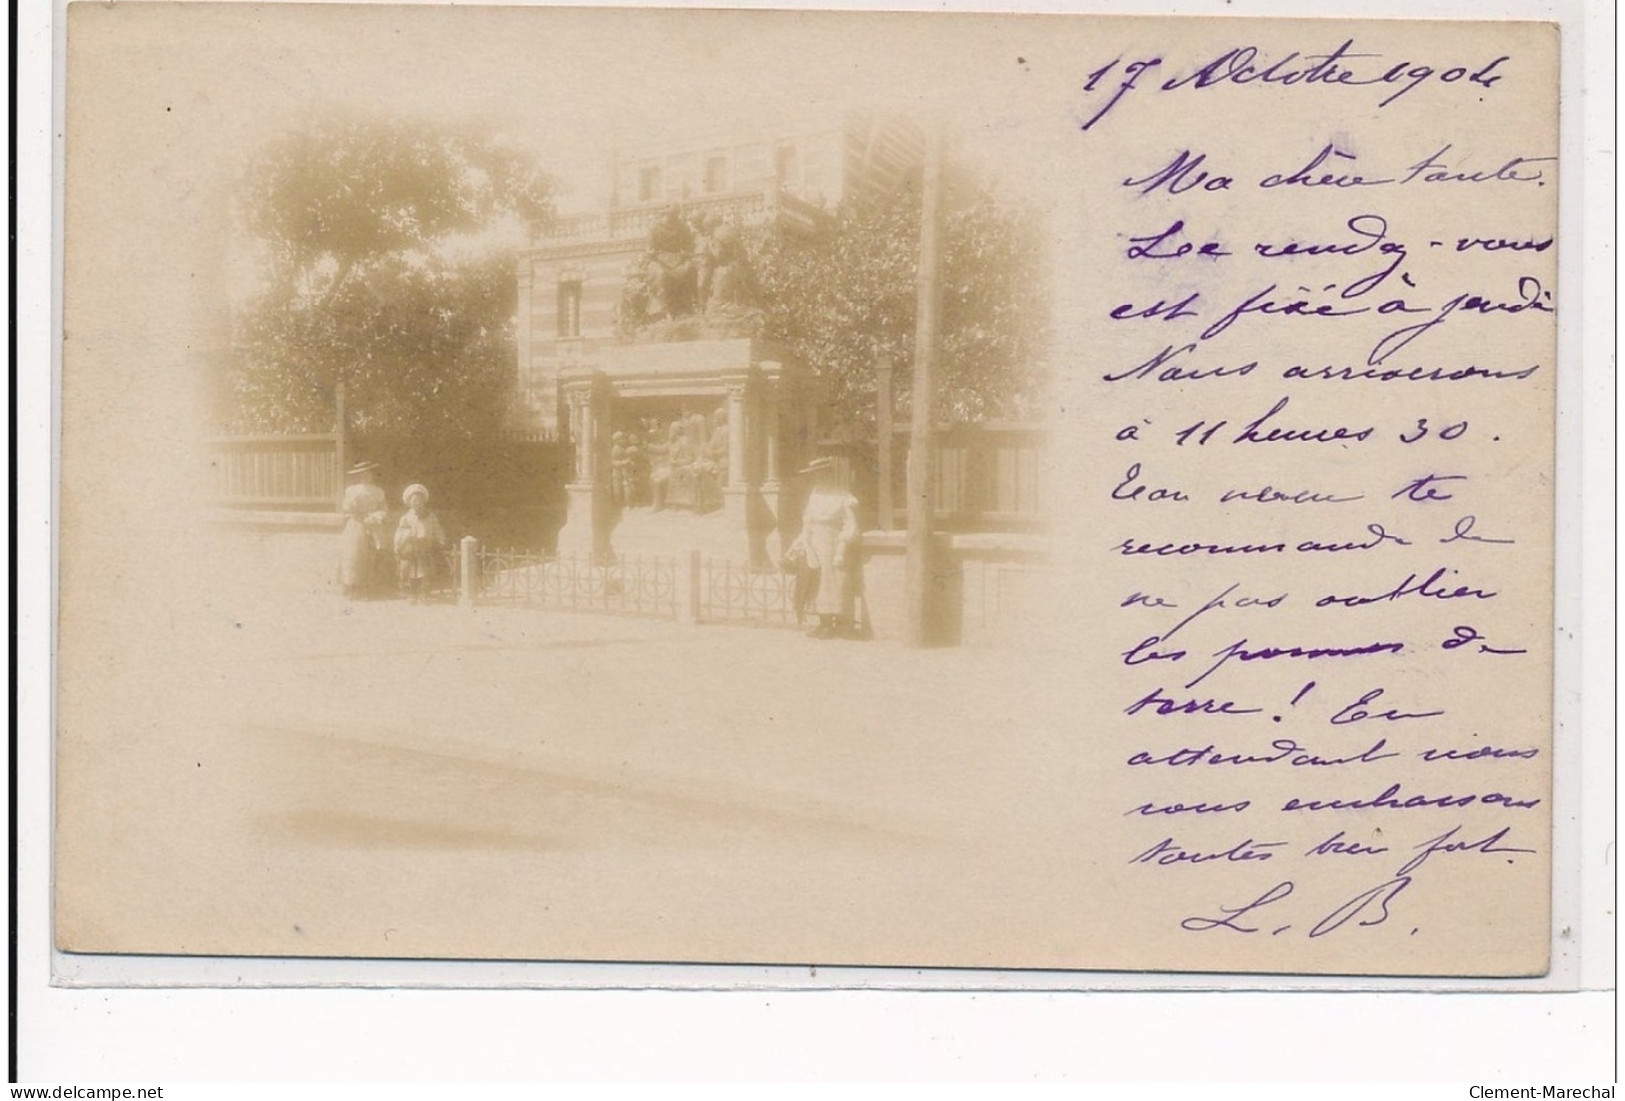 17 Octobre 1904
Ma chère tante.
Le rendez-vous
est fixé à jeudi
Nous arriverons
à 11 heures 30.
te
recommande de
ne pas oublier
les pommes de
terre ! En
attendant nous
vous embrassons
toutes bien fort.
L. B.
delcampe.net
Clement-Marechal